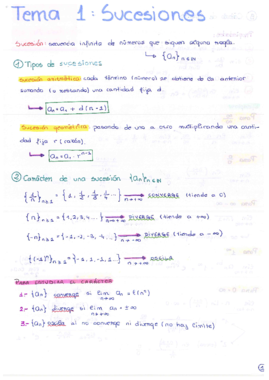 Tema 1: Sucesiones
Sucesión: secuencia infinita de números que siguen alguna regla.
→ {aₙ}ₙ≥₁
① Tipos de sucesiones
Sucesión aritmética: cada término (número) se obtiene de la anterior
sumando (o restando) una cantidad fija d.
→ aₙ = a₁ + d(n-1)
Sucesión geométrica: pasando de uno a otro multiplicando una canti-
dad fija r (razón).
→ aₙ = a₁ · rⁿ⁻¹
② Carácter de una sucesión {aₙ}ₙ≥₁
{1/n}ₙ≥₁ = {1, 1/2, 1/3, 1/4 ...} → n→+∞ CONVERGE (tiende a 0)
{n}ₙ≥₁ = {1, 2, 3, 4, ...} → n→+∞ DIVERGE (tiende a +∞)
{-n}ₙ≥₁ = {-1, -2, -3, -4, ...} → n→+∞ DIVERGE (tiende a -∞)
{(-1)ⁿ}ₙ≥₁ = {-1, 1, -1, 1, ...} → n→+∞ OSCILA
Para estudiar su carácter
1- {aₙ} converge si lim n→+∞ aₙ = l (nº)
2- {aₙ} diverge si lim n→+∞ aₙ = ±∞
3- {aₙ} oscila si no converge ni diverge (no hay límite)
①